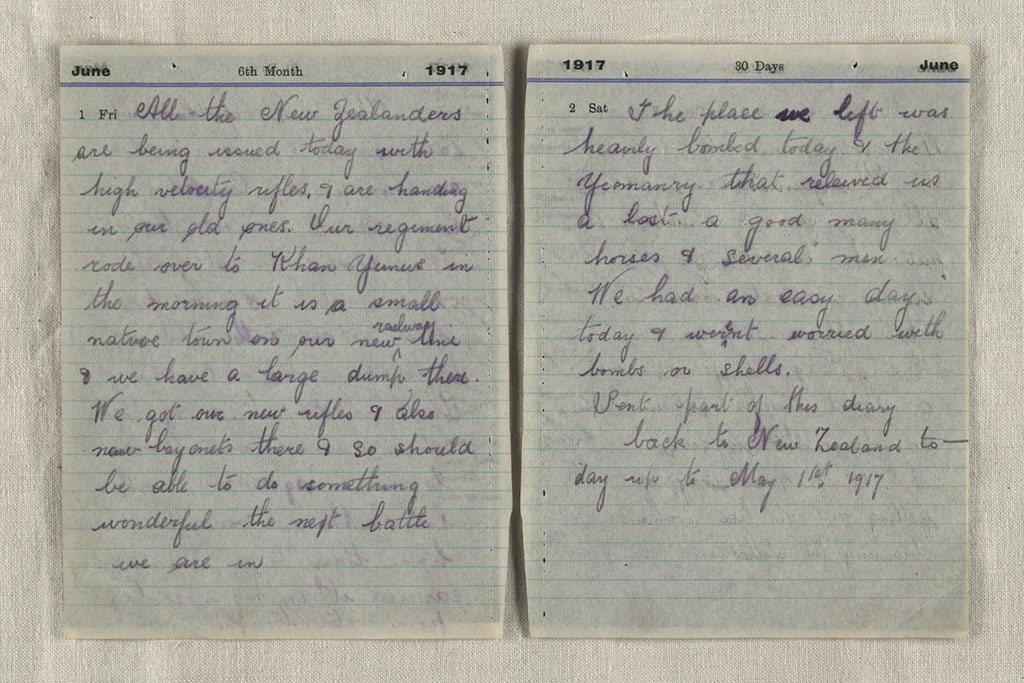 June 6th Month 1917
1 Fri All the New Zealanders
are being issued today with
high velocity rifles, & are handing
in our old ones. Our regiment
rode over to Khan Yunus in
the morning it is a small
native town on our new railway line
& we have a large dump there.
We got our new rifles & also
new bayonets there & so should
be able to do something
wonderful the next battle
we are in
1917 30 Days June
2 Sat The place we left was
heavily bombed today & the
Yeomanry that releived us
a lost a good many
horses & several men
We had an easy day
today & wern't worried with
bombs or shells.
Sent part of this diary
back to New Zealand to—
day up to May 1st 1917